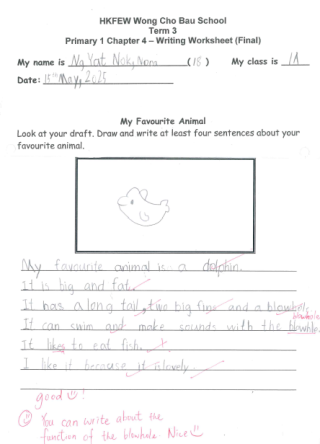 HKFEW Wong Cho Bau School
Term 3
Primary 1 Chapter 4 – Writing Worksheet (Final)
My name is Ng Yat Nok, Nora (18) My class is 1A
Date: 15th May, 2025
My Favourite Animal
Look at your draft. Draw and write at least four sentences about your
favourite animal.
My favourite animal is a dolphin.
It is big and fat.
It has a long tail, two big fins and a blowhole.
blowhole
It can swim and make sounds with the blowhole.
It likes to eat fish.
I like it because it is lovely.
good !
You can write about the
function of the blowhole Nice